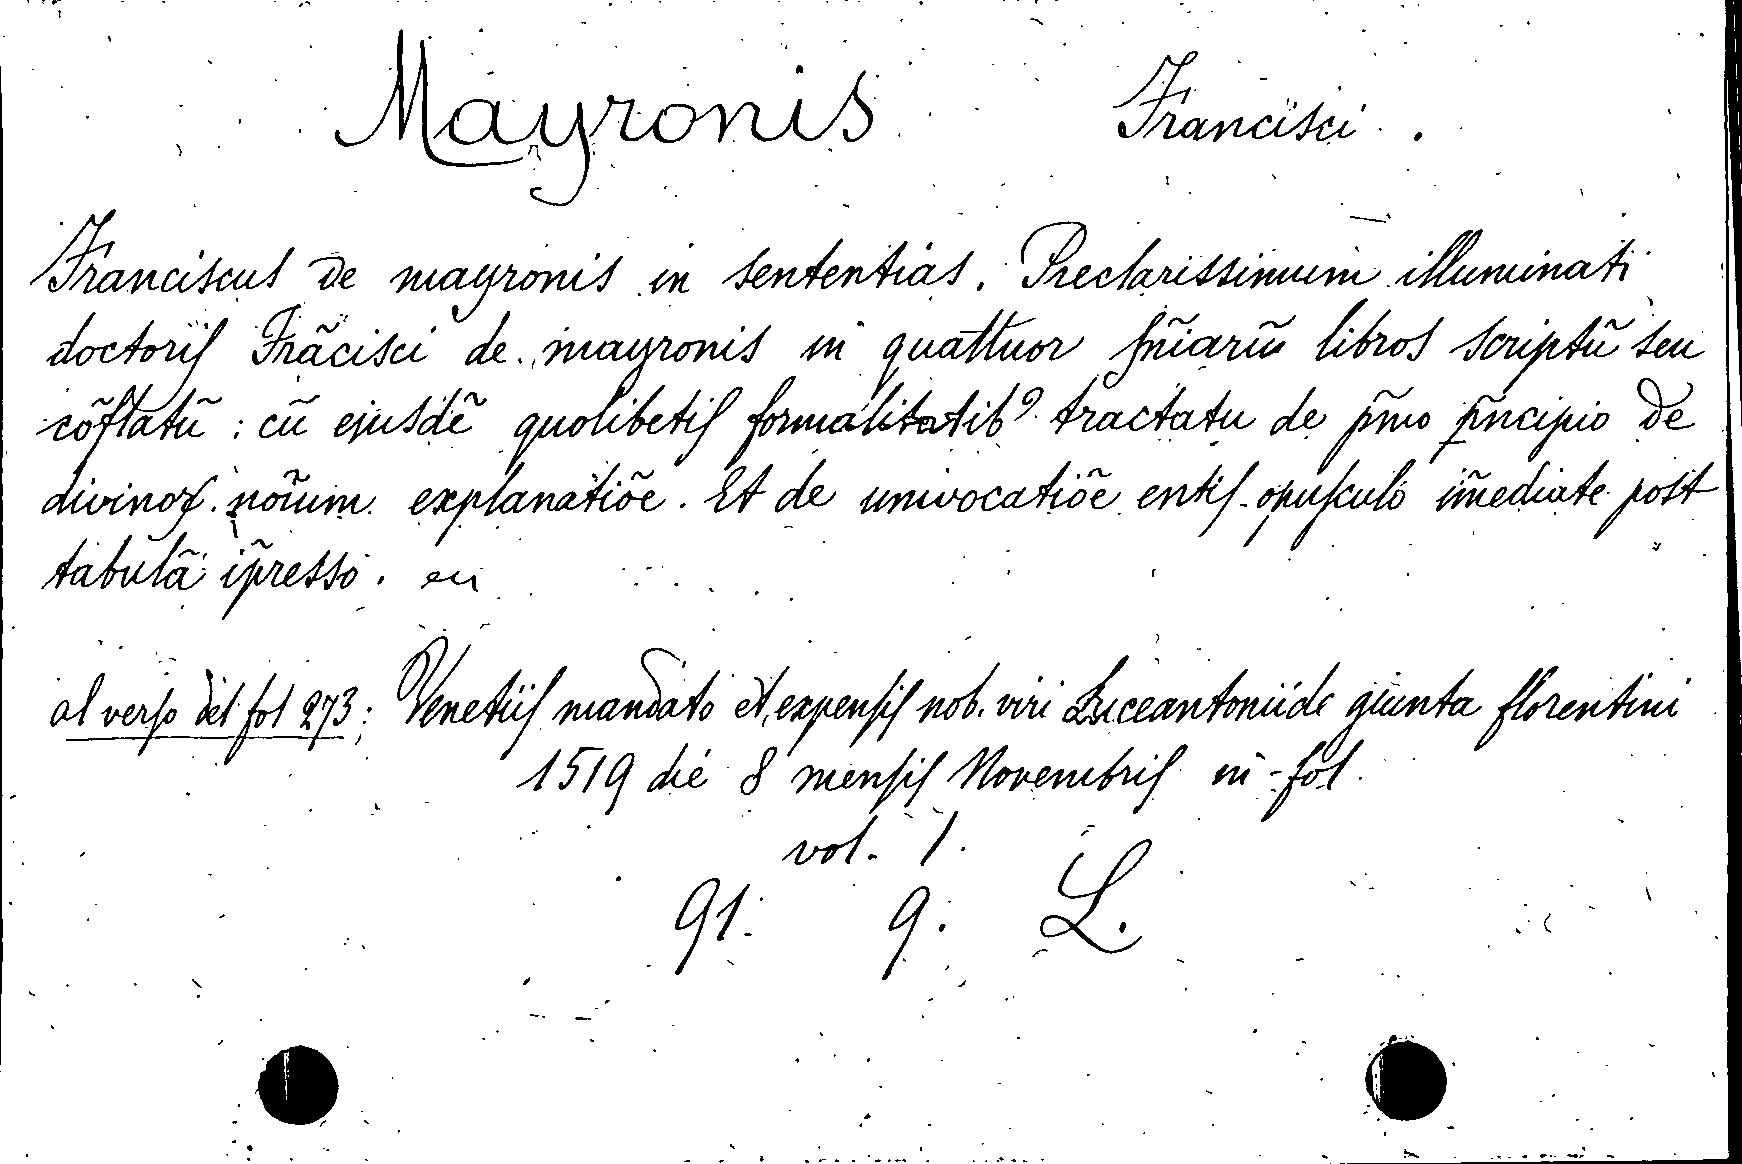 Mayronis Francisci.
Franciscus de mayronis in sententias. Preclarissimum illuminati
doctoris Frãcisci de mayronis in quattuor sñiarũ libros scriptũ seu
cõflatũ: cũ ejusdẽ quolibetis formalitatibꝰ tractatu de p̃mo p̃ncipio de
divinoꝝ noĩum explanatiõe. Et de univocatiõe entis opusculo im̃ediate post
tabulã ĩpresso. en
al verso del fol 273: Venetiis mandato et expensis nob. viri Luceantonii de giunta florentini
1519 die 8 mensis Novembris in-fol.
vol. 1.
91. 9. L.